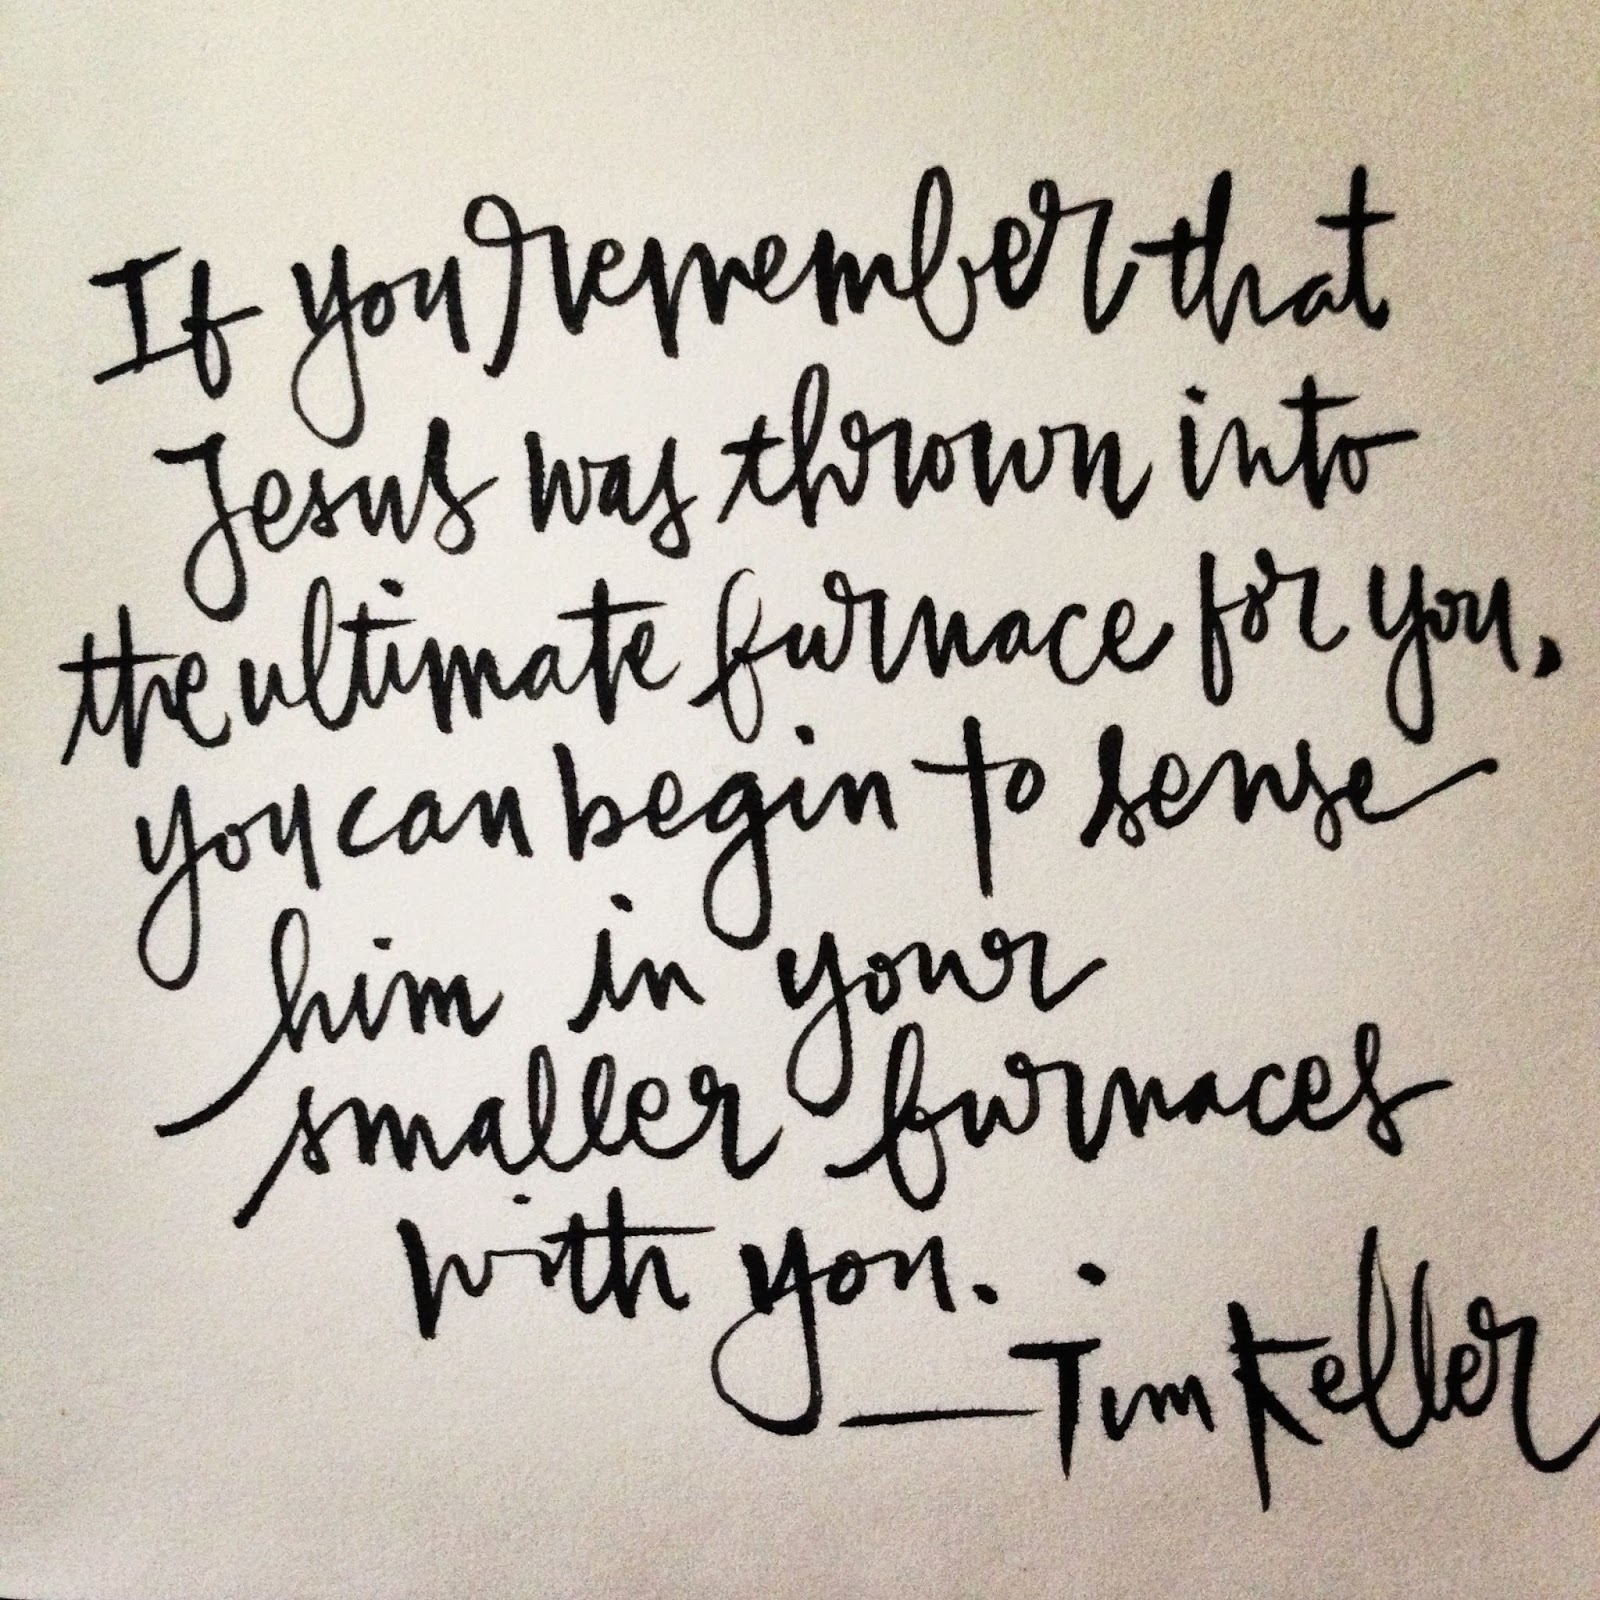 If you remember that
Jesus was thrown into
the ultimate furnace for you,
you can begin to sense
him in your
smaller furnaces
with you.
—Tim Keller